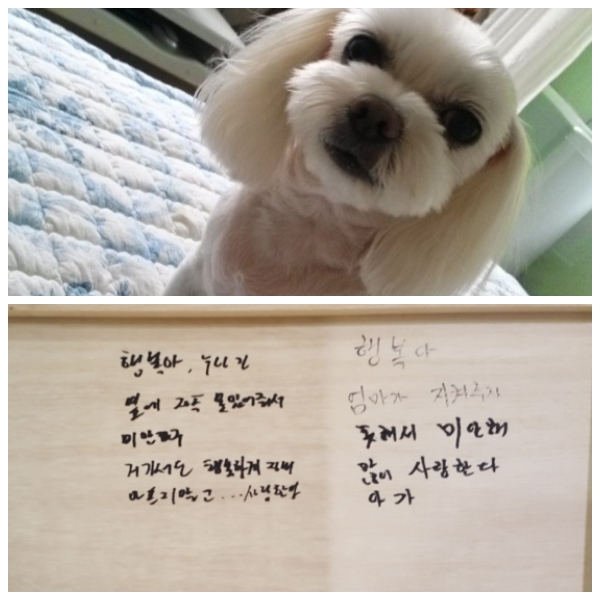 행복아, 누나가
옆에 계속 못있어줘서
미안하구
거기서도 행복하게 지내
아프지말고...사랑한다
행복아
엄마가 지켜주지
못해서 미안해
많이 사랑한다
아가